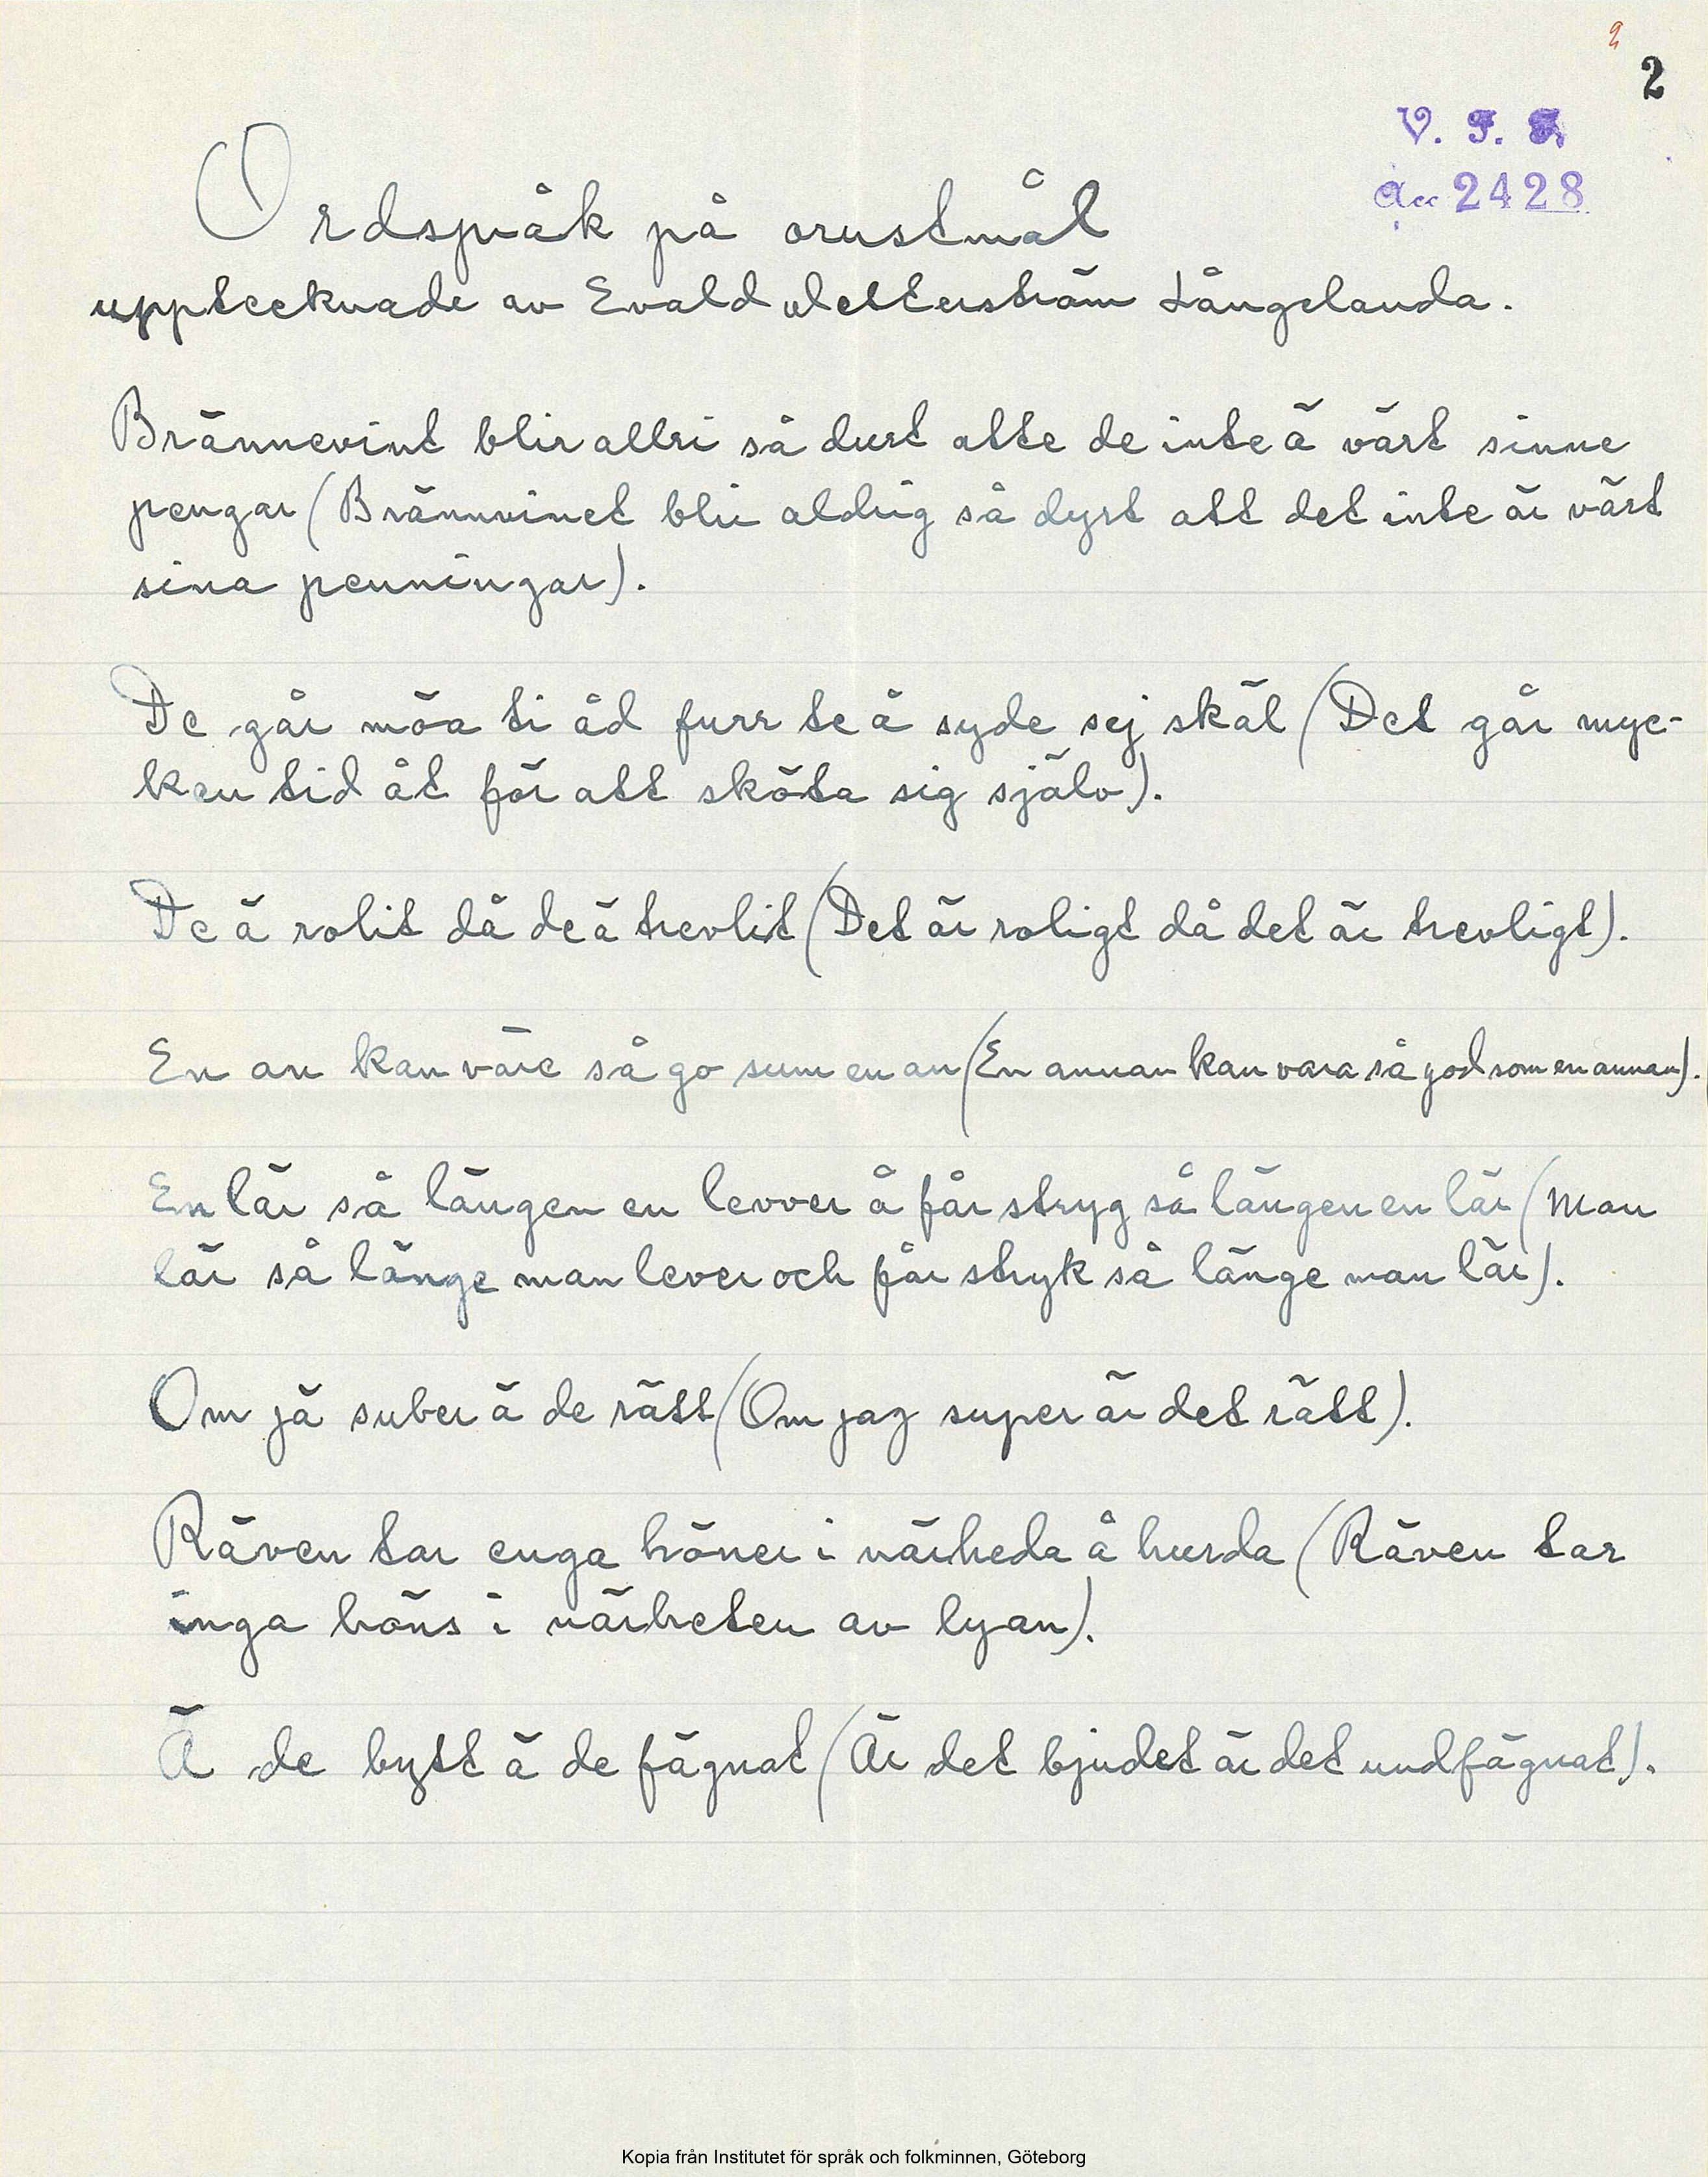 2
2
V. F. F.
Acc 2428
Ordspråk på orustmål
upptecknade av Evald Wetterström Långelanda.
Brännevint blir allri så durt atte de inte ä värt sinne
pengar (Brännvinet blir aldrig så dyrt att det inte är värt
sina penningar).
De går möa ti åd furr te å syde sej skäl (Det går myc-
ken tid åt för att sköta sig själv).
De ä rolit då de ä trevlit (Det är roligt då det är trevligt).
En an kan väre så go sum en an (En annan kan vara så god som en annan).
En lär så längen en levver å får stryg så längen en lär (Man
lär så länge man lever och får stryk så länge man lär).
Om jä suber ä de rätt (Om jag super är det rätt).
Räven tar enga höner i närheda å hurda (Räven tar
inga höns i närheten av lyan).
Ä de bytt ä de fägnat (Är det bjudet är det undfägnat).
Kopia från Institutet för språk och folkminnen, Göteborg